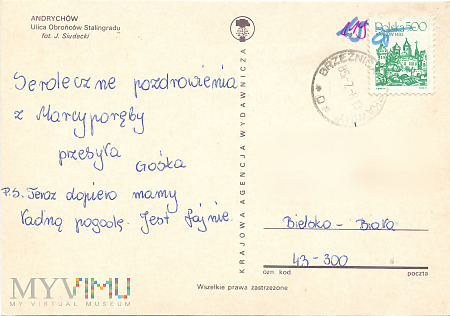 ANDRYCHÓW
Ulica Obrońców Stalingradu
fot. J. Siudecki
Serdeczne pozdrowienia
z Marcyporęby
przesyła
Gośka
P.S. Teraz dopiero mamy
ładną pogodę. Jest fajnie.
KRAJOWA AGENCJA WYDAWNICZA
Polska 500
BRZEŹNICA
Bielsko - Biała
43-300
ozn. kod
poczta
Wszelkie prawa zastrzeżone
MYVIMU
MY VIRTUAL MUSEUM